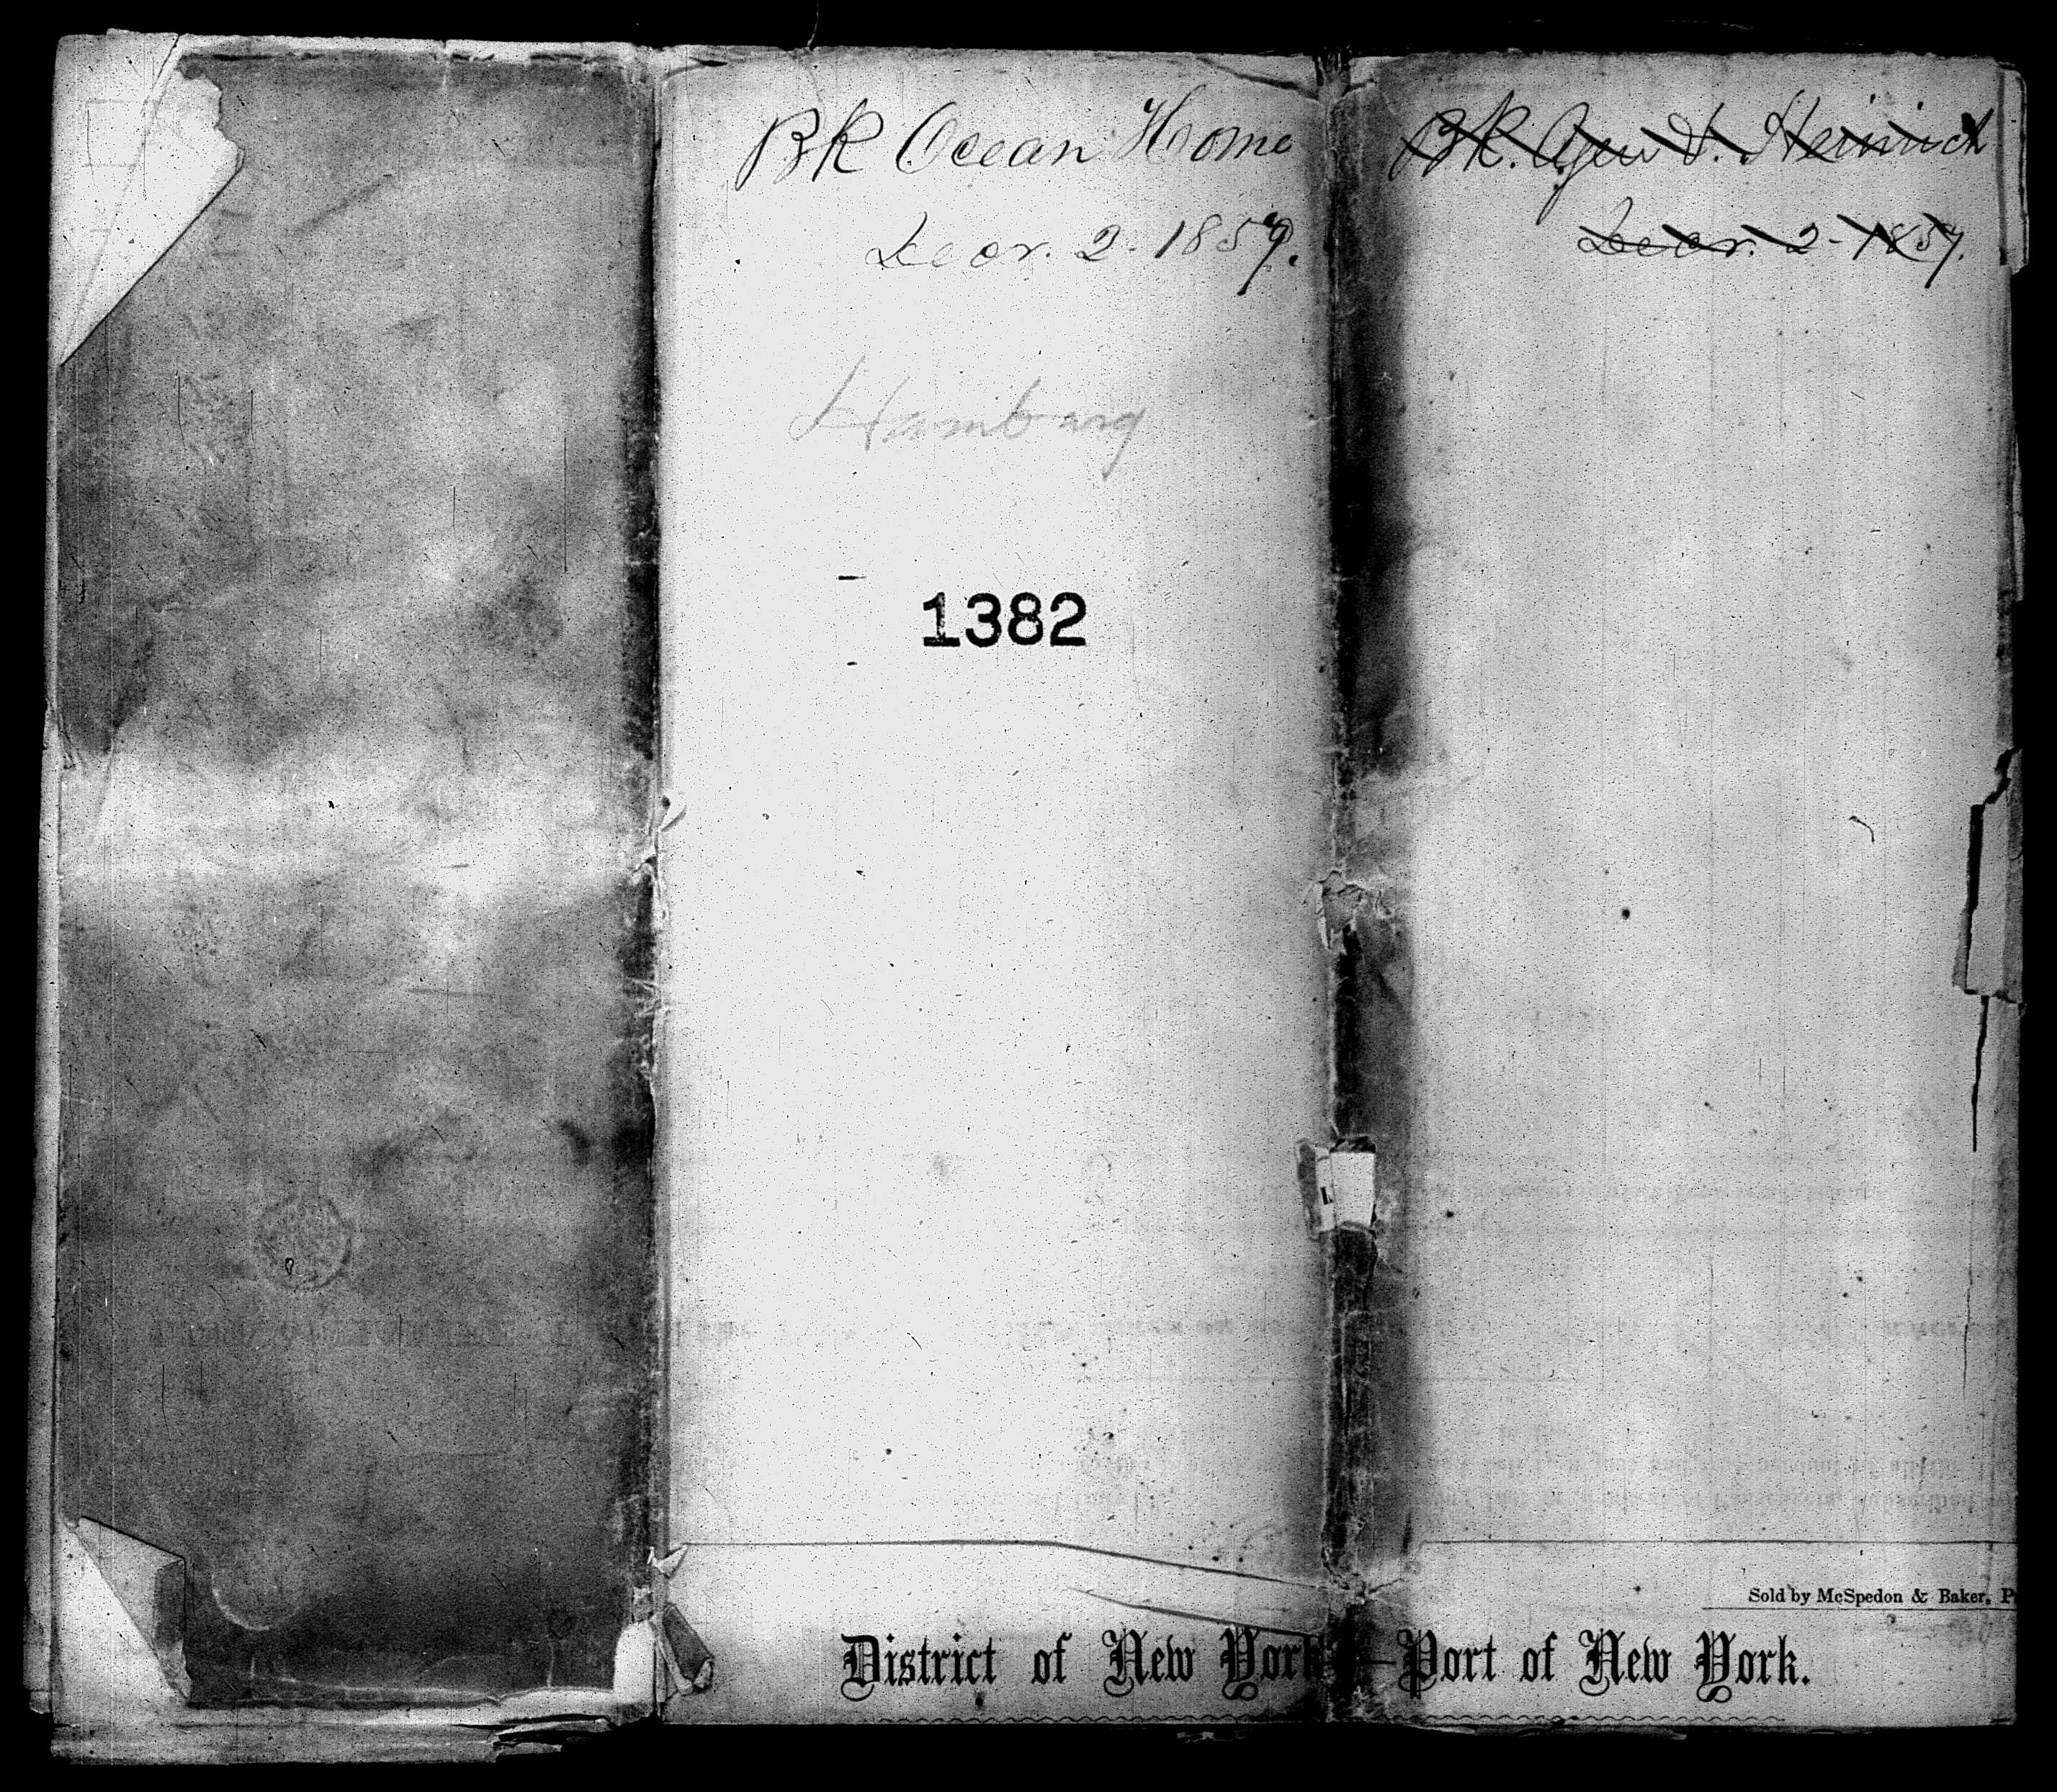 BK Ocean Home
Decr. 2 - 1857.
Hamburg
1382
BK. Agen & Heinrich
Decr. 2 - 1857.
Sold by McSpedon & Baker,
District of New York - Port of New York.